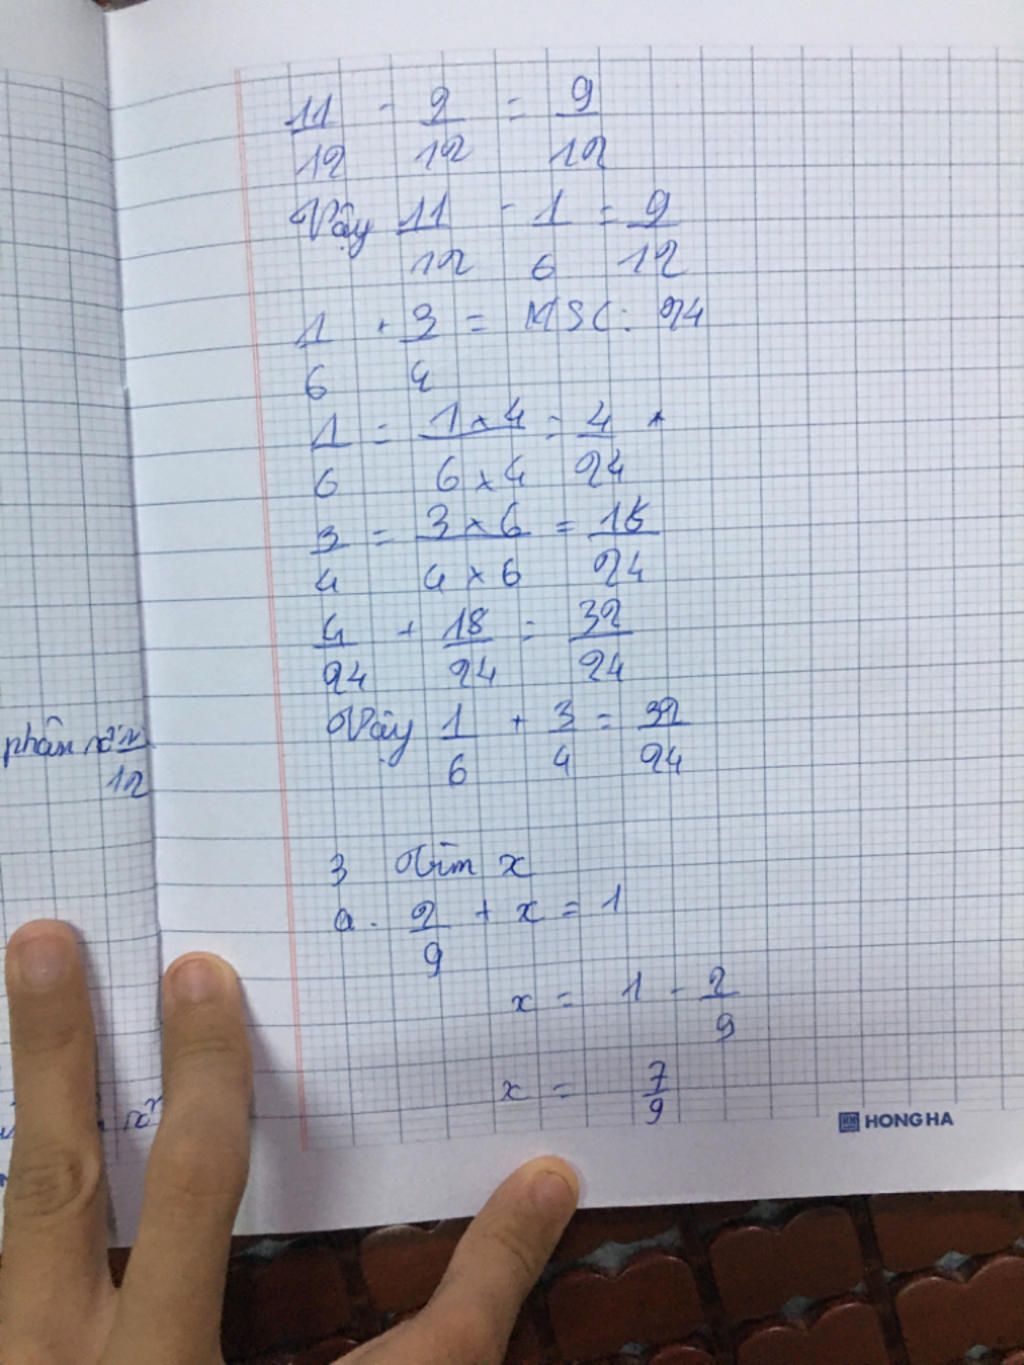 11/12 - 2/12 = 9/12
Vậy 11/12 - 1/6 = 9/12
1/6 + 3/4 = MSC: 24
1/6 = 1×4/6×4 = 4/24
3/4 = 3×6/4×6 = 18/24
4/24 + 18/24 = 32/24
Vậy 1/6 + 3/4 = 32/24
3 Tìm x
a. 2/9 + x = 1
x = 1 - 2/9
x = 7/9
HONG HA
phân số
12
số